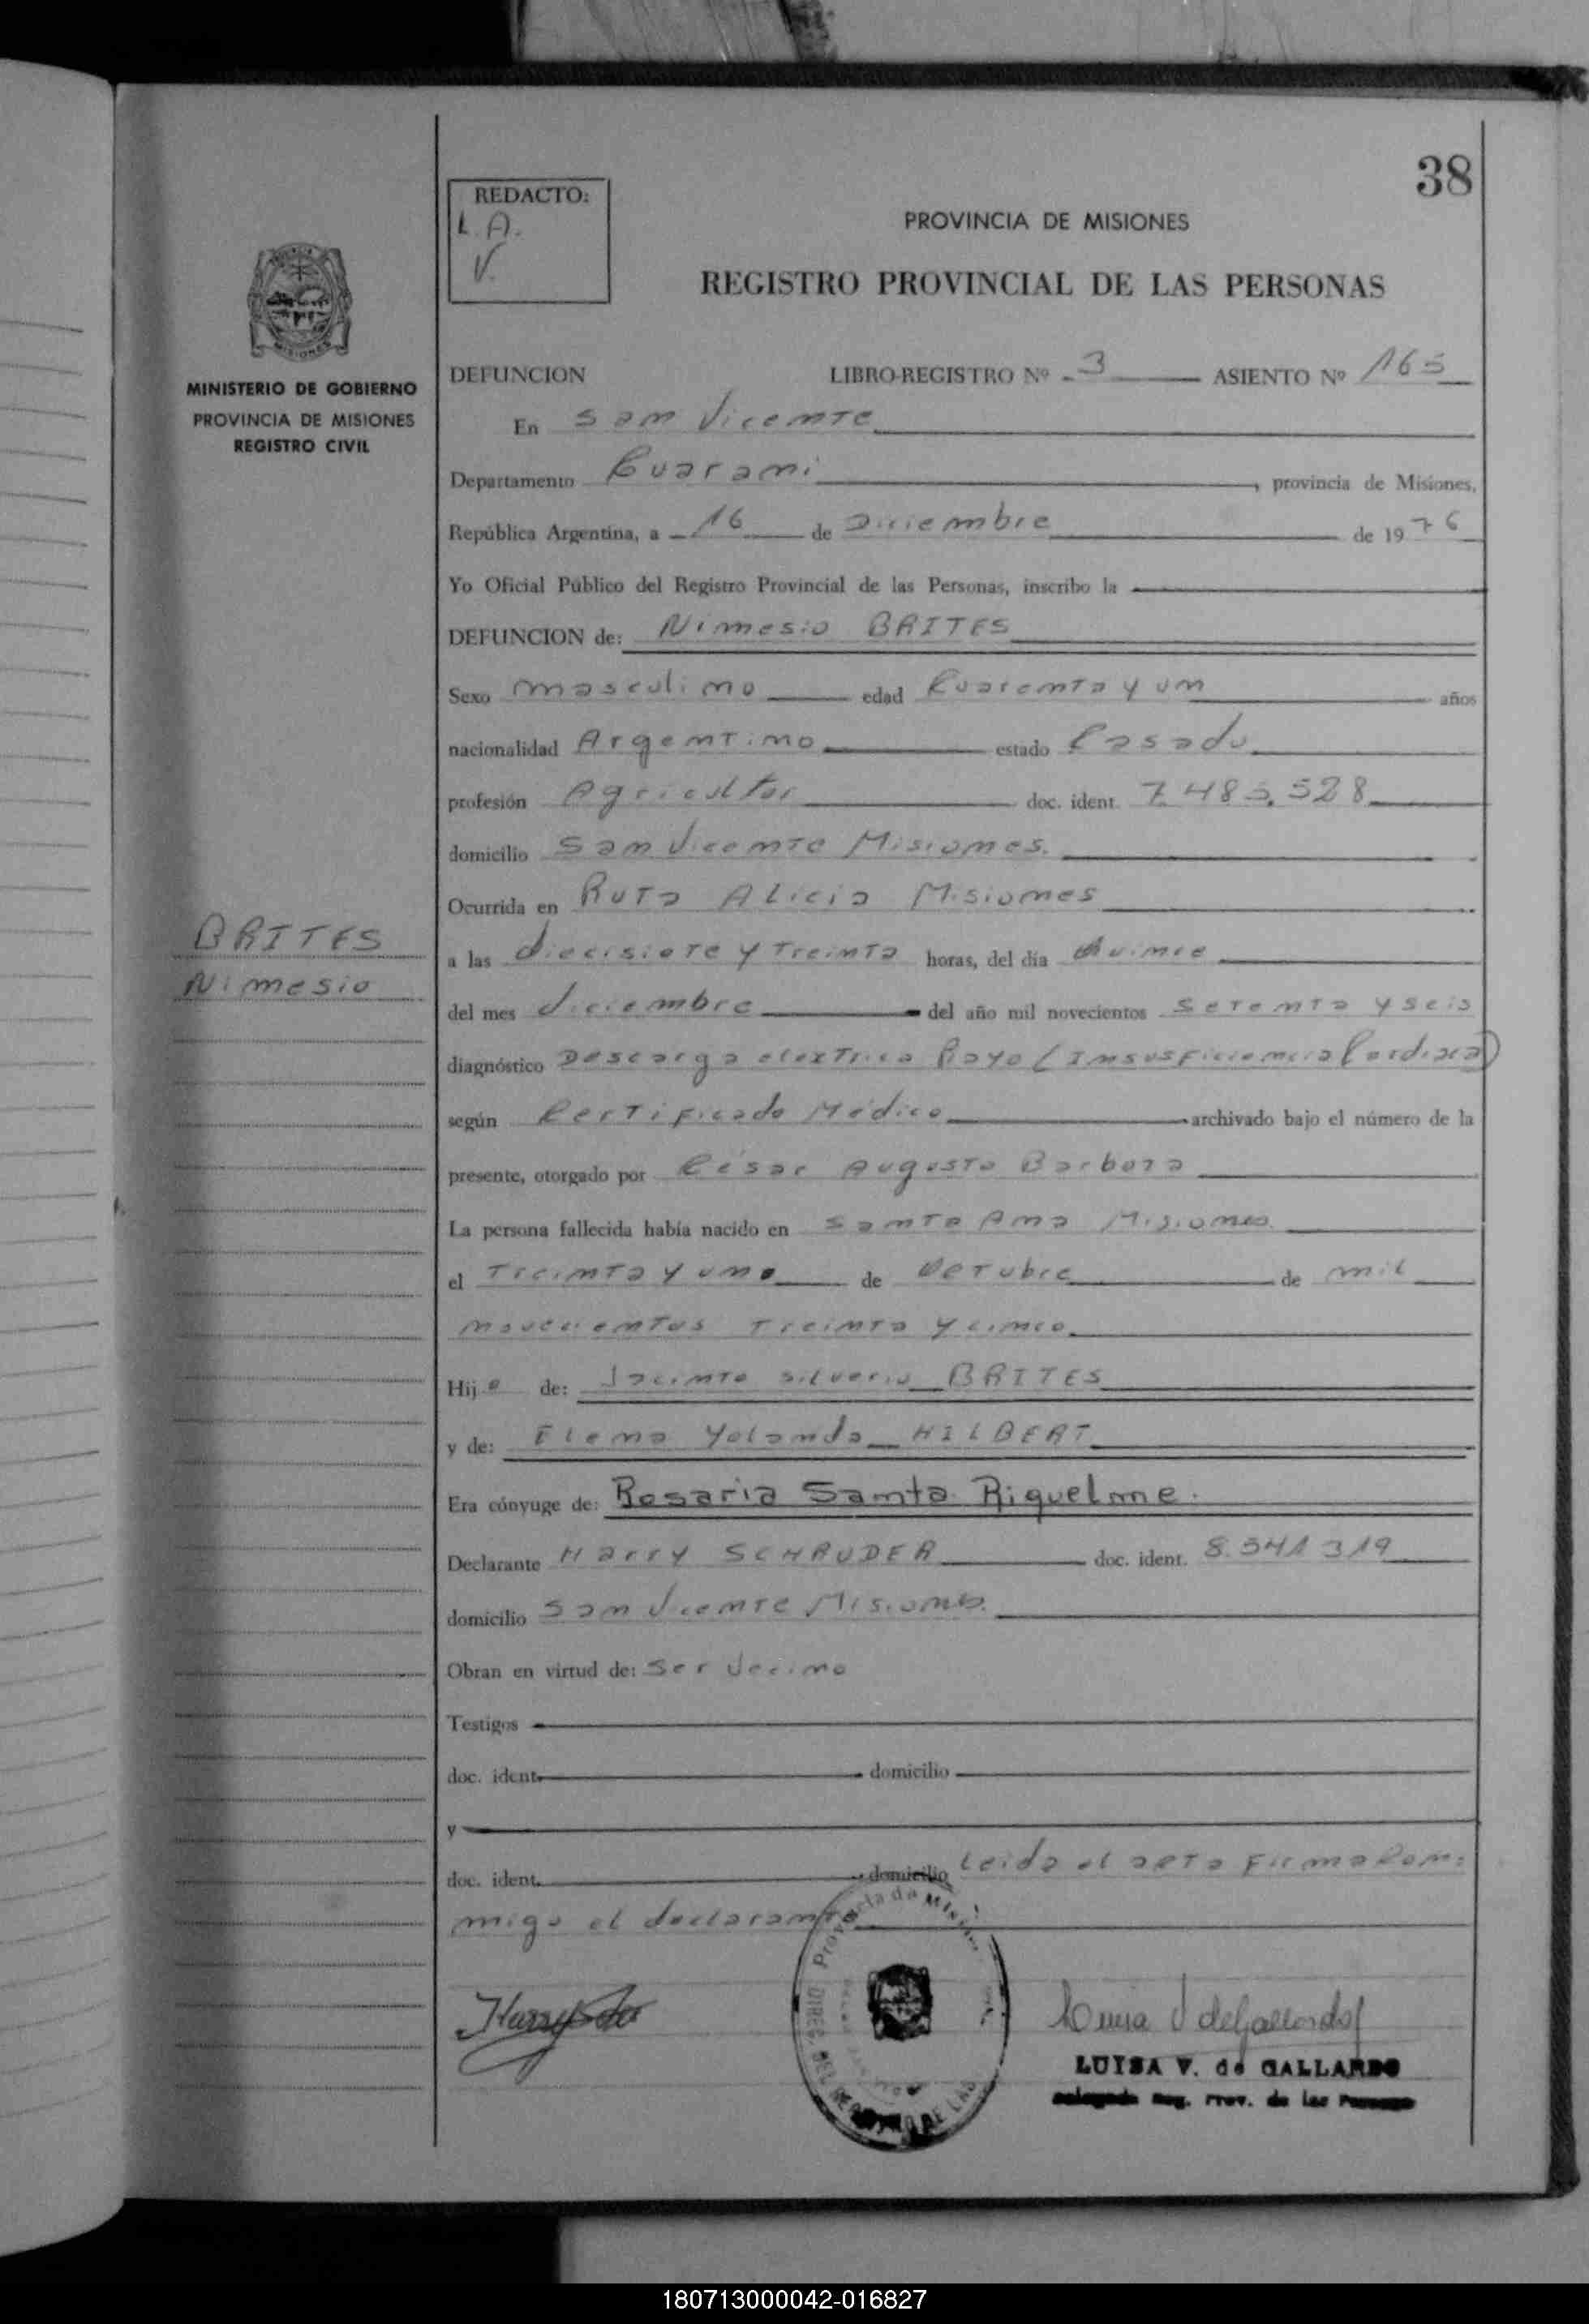 38
REDACTO:
L.A.
V.
PROVINCIA DE MISIONES
REGISTRO PROVINCIAL DE LAS PERSONAS
MINISTERIO DE GOBIERNO
PROVINCIA DE MISIONES
REGISTRO CIVIL
DEFUNCION LIBRO-REGISTRO Nº 3 ASIENTO Nº 165
En San Vicente
Departamento Guarani, provincia de Misiones,
República Argentina, a 16 de Diciembre de 1976
Yo Oficial Público del Registro Provincial de las Personas, inscribo la
DEFUNCION de: Nimesio BRITES
Sexo masculino edad Cuarenta y un años
nacionalidad Argentino estado Casado
profesión Agricultor doc. ident. 7.485.528
domicilio San Vicente Misiones.
Ocurrida en Ruta Alicia Misiones
a las diecisiete y treinta horas, del día quince
del mes diciembre del año mil novecientos setenta y seis
diagnóstico Descarga elextrica Rayo (Insusficiencia Cardiaca)
según Certificado Médico archivado bajo el número de la
presente, otorgado por César Augusto Barboza
La persona fallecida había nacido en Santa Ana Misiones.
el treinta y uno de Octubre de mil
novecientos treinta y cinco
Hijo de: Jacinto Silverio BRITES
y de: Elena Yolanda HILBERT
Era cónyuge de: Rosaria Santa Riquelme.
Declarante Harry SCHRUDER doc. ident. 8.541319
domicilio San Vicente Misiones.
Obran en virtud de: Ser Vecino
Testigos
doc. ident. domicilio
y
doc. ident. domicilio Leida el acta Firma Con:
migo el declarante
BRITES
Nimesio
Provincia de Misiones
DIREC. DEL REGISTRO DE LAS
Luisa V de Gallardo
LUISA V. de GALLARDO
Delegada Reg. Prov. de las Personas
180713000042-016827